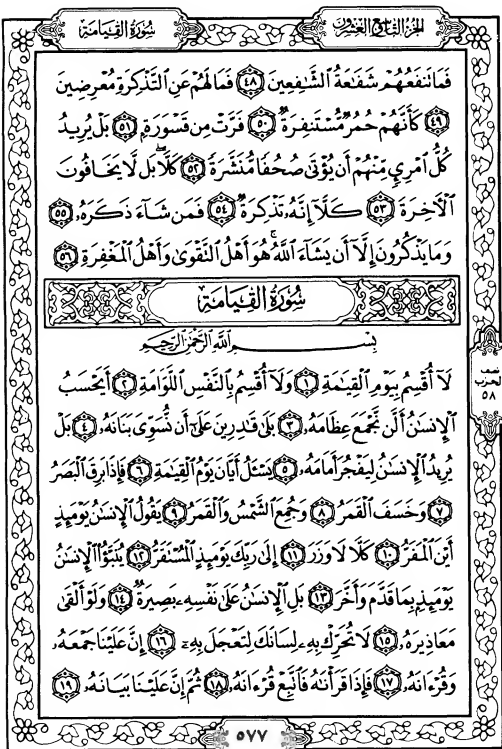 سُورَةُ القِيَامَةِ
الجُزءُ التَّاسِعُ وَالعِشْرُونَ
فَمَا تَنفَعُهُمْ شَفَٰعَةُ ٱلشَّٰفِعِينَ ٤٨ فَمَا لَهُمْ عَنِ ٱلتَّذْكِرَةِ مُعْرِضِينَ
٤٩ كَأَنَّهُمْ حُمُرٌ مُّسْتَنفِرَةٌ ٥٠ فَرَّتْ مِن قَسْوَرَةٍ ٥١ بَلْ يُرِيدُ
كُلُّ ٱمْرِئٍ مِّنْهُمْ أَن يُؤْتَىٰ صُحُفًا مُّنَشَّرَةً ٥٢ كَلَّا بَل لَّا يَخَافُونَ
ٱلْأَخِرَةَ ٥٣ كَلَّا إِنَّهُۥ تَذْكِرَةٌ ٥٤ فَمَن شَآءَ ذَكَرَهُۥ ٥٥
وَمَا يَذْكُرُونَ إِلَّا أَن يَشَآءَ ٱللَّهُ هُوَ أَهْلُ ٱلتَّقْوَىٰ وَأَهْلُ ٱلْمَغْفِرَةِ ٥٦
سُورَةُ القِيَامَةِ
بِسْمِ ٱللَّهِ ٱلرَّحْمَٰنِ ٱلرَّحِيمِ
لَآ أُقْسِمُ بِيَوْمِ ٱلْقِيَٰمَةِ ١ وَلَآ أُقْسِمُ بِٱلنَّفْسِ ٱللَّوَّامَةِ ٢ أَيَحْسَبُ
ٱلْإِنسَٰنُ أَلَّن نَّجْمَعَ عِظَامَهُۥ ٣ بَلَىٰ قَٰدِرِينَ عَلَىٰٓ أَن نُّسَوِّىَ بَنَانَهُۥ ٤ بَلْ
يُرِيدُ ٱلْإِنسَٰنُ لِيَفْجُرَ أَمَامَهُۥ ٥ يَسْـَٔلُ أَيَّانَ يَوْمُ ٱلْقِيَٰمَةِ ٦ فَإِذَا بَرِقَ ٱلْبَصَرُ
٧ وَخَسَفَ ٱلْقَمَرُ ٨ وَجُمِعَ ٱلشَّمْسُ وَٱلْقَمَرُ ٩ يَقُولُ ٱلْإِنسَٰنُ يَوْمَئِذٍ
أَيْنَ ٱلْمَفَرُّ ١٠ كَلَّا لَا وَزَرَ ١١ إِلَىٰ رَبِّكَ يَوْمَئِذٍ ٱلْمُسْتَقَرُّ ١٢ يُنَبَّؤُا۟ ٱلْإِنسَٰنُ
يَوْمَئِذٍۭ بِمَا قَدَّمَ وَأَخَّرَ ١٣ بَلِ ٱلْإِنسَٰنُ عَلَىٰ نَفْسِهِۦ بَصِيرَةٌ ١٤ وَلَوْ أَلْقَىٰ
مَعَاذِيرَهُۥ ١٥ لَا تُحَرِّكْ بِهِۦ لِسَانَكَ لِتَعْجَلَ بِهِۦٓ ١٦ إِنَّ عَلَيْنَا جَمْعَهُۥ
وَقُرْءَانَهُۥ ١٧ فَإِذَا قَرَأْنَٰهُ فَٱتَّبِعْ قُرْءَانَهُۥ ١٨ ثُمَّ إِنَّ عَلَيْنَا بَيَانَهُۥ ١٩
نصف
الحزب
٥٨
٥٧٧